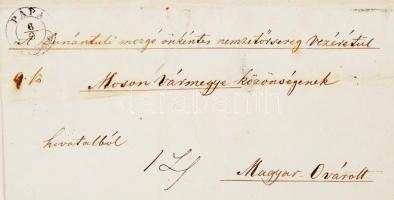 PÁPA
6/9
A Dunántuli mozgó önkéntes nemzetőrsereg Vezérétül
Moson Vármegye közönségének
hivatalból
Magyar-Ovárott